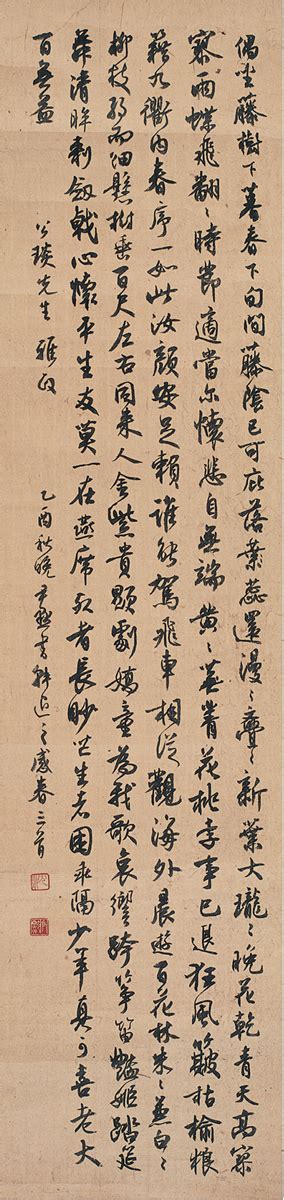 偶坐藤樹下暮春下旬間藤陰已可庇落葉蕊還漫〻亹〻新葉大瓏〻晚花乾青天高寥
寥兩蝶飛翻〻時節適當尔懷悲自無端黃〻蕪菁花桃李事已退狂風簸枯榆狼
藉九衢內春序一如此汝顏安足賴誰能駕飛車相從觀海外晨遊百花林朱〻兼白〻
柳枝弱而細懸樹垂百尺左右同來人金紫貴顯劇嬌童為我歌哀響跨箏笛豔姬踏筵
舞清眸刺劍戟心懷平生友莫一在燕席死者長眇芒生者困乖隔少年真可喜老大
百無益
公琰先生雅政
乙酉秋晚尹默書韓退之感春三首